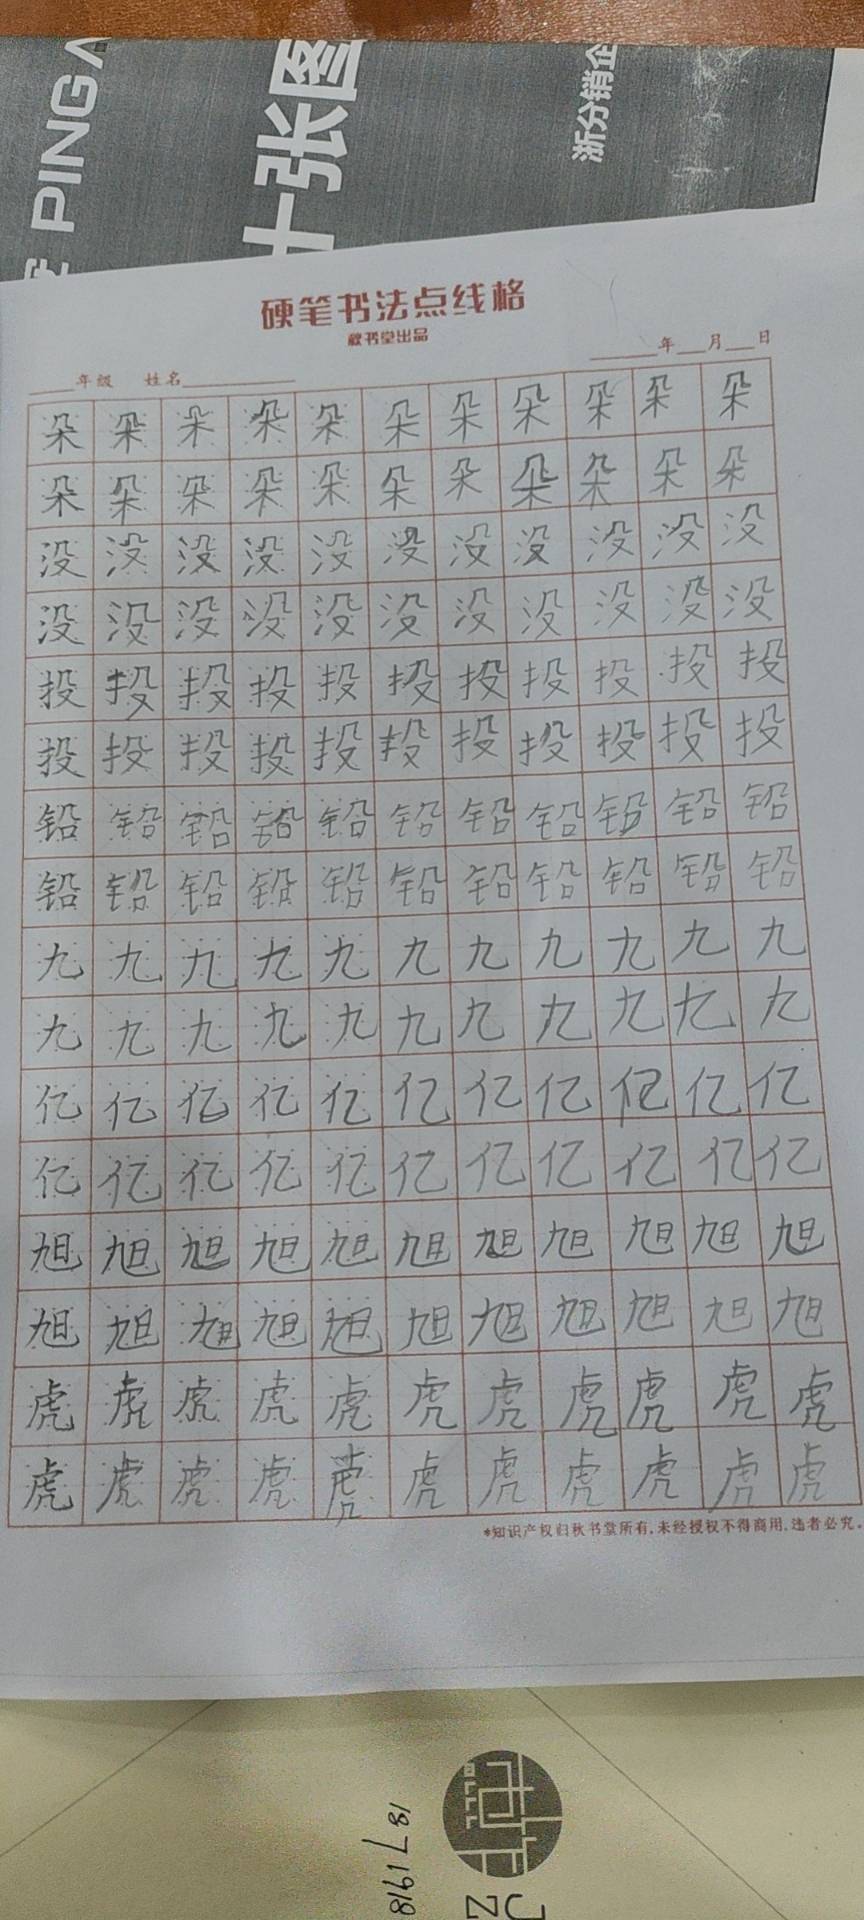 PING
十张图
浙分销企
硬笔书法点线格
秋书堂出品
____年级 姓名__________ ____年__月__日
朵 朵 朵 朵 朵 朵 朵 朵 朵 朵 朵
朵 朵 朵 朵 朵 朵 朵 朵 朵 朵 朵
没 没 没 没 没 没 没 没 没 没 没
没 没 没 没 没 没 没 没 没 没 没
投 投 投 投 投 投 投 投 投 投 投
投 投 投 投 投 投 投 投 投 投 投
铅 铅 铅 铅 铅 铅 铅 铅 铅 铅 铅
铅 铅 铅 铅 铅 铅 铅 铅 铅 铅 铅
九 九 九 九 九 九 九 九 九 九 九
九 九 九 九 九 九 九 九 九 九 九
亿 亿 亿 亿 亿 亿 亿 亿 亿 亿 亿
亿 亿 亿 亿 亿 亿 亿 亿 亿 亿 亿
旭 旭 旭 旭 旭 旭 旭 旭 旭 旭 旭
旭 旭 旭 旭 旭 旭 旭 旭 旭 旭 旭
虎 虎 虎 虎 虎 虎 虎 虎 虎 虎 虎
虎 虎 虎 虎 虎 虎 虎 虎 虎 虎 虎
*知识产权归秋书堂所有,未经授权不得商用,违者必究。
JZ